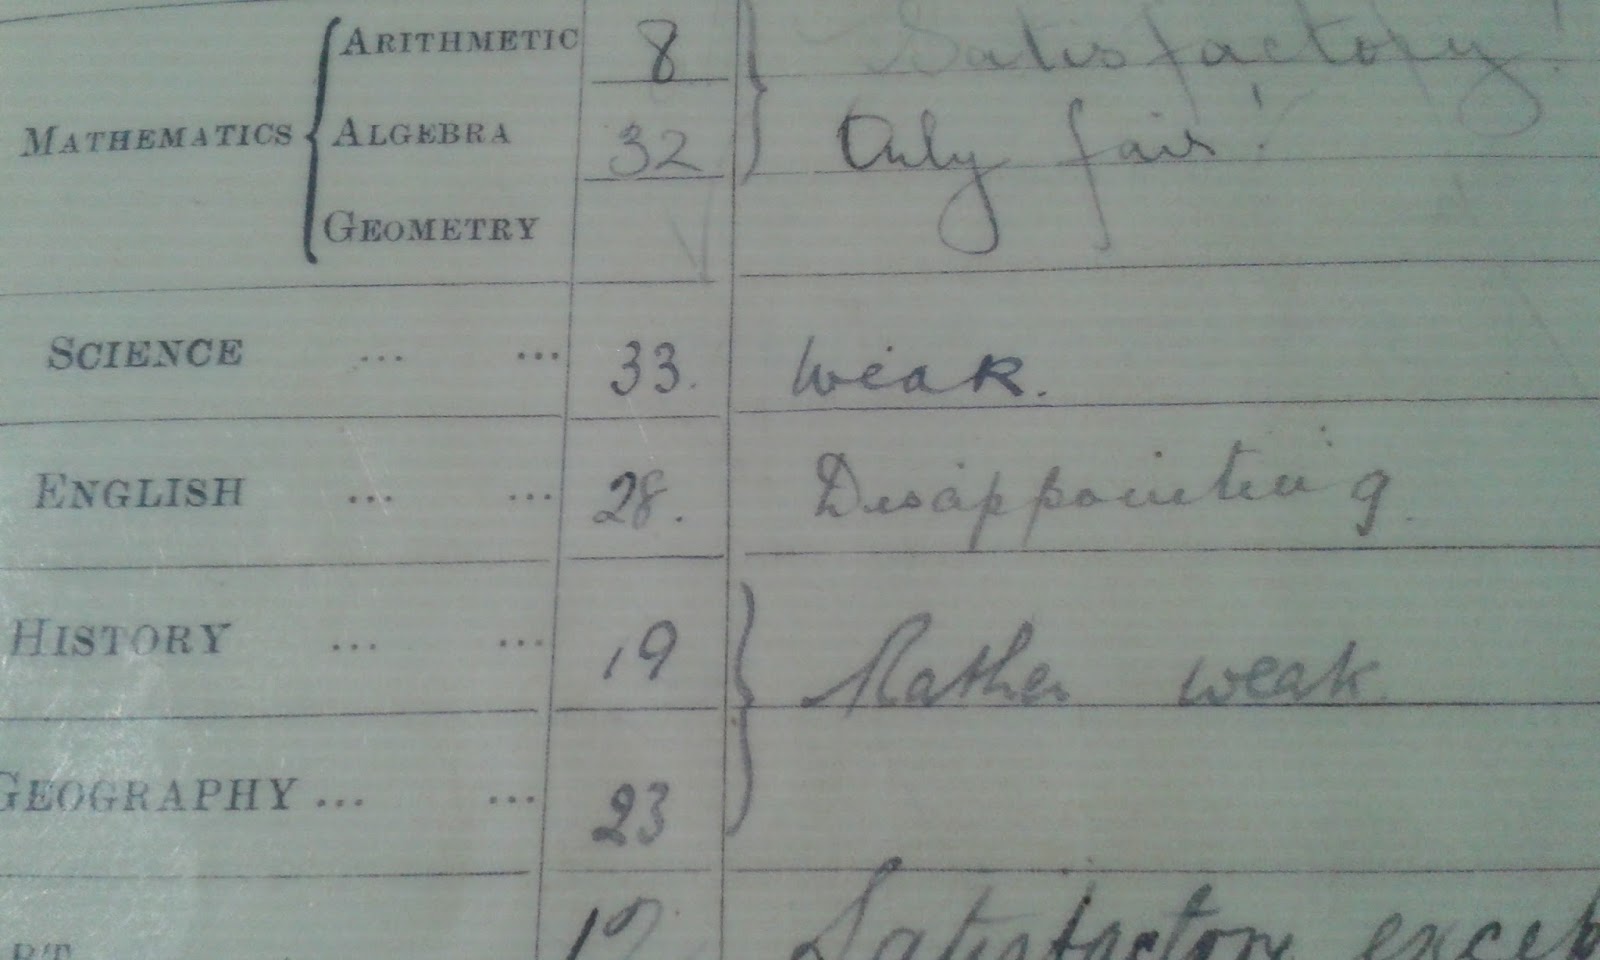 ARITHMETIC 8 Satisfactory!
MATHEMATICS ALGEBRA 32 Only fair!
GEOMETRY
SCIENCE ... ... 33. Weak.
ENGLISH ... ... 28. Disappointing.
HISTORY ... ... 19 Rather weak.
GEOGRAPHY ... ... 23
Satisfactory